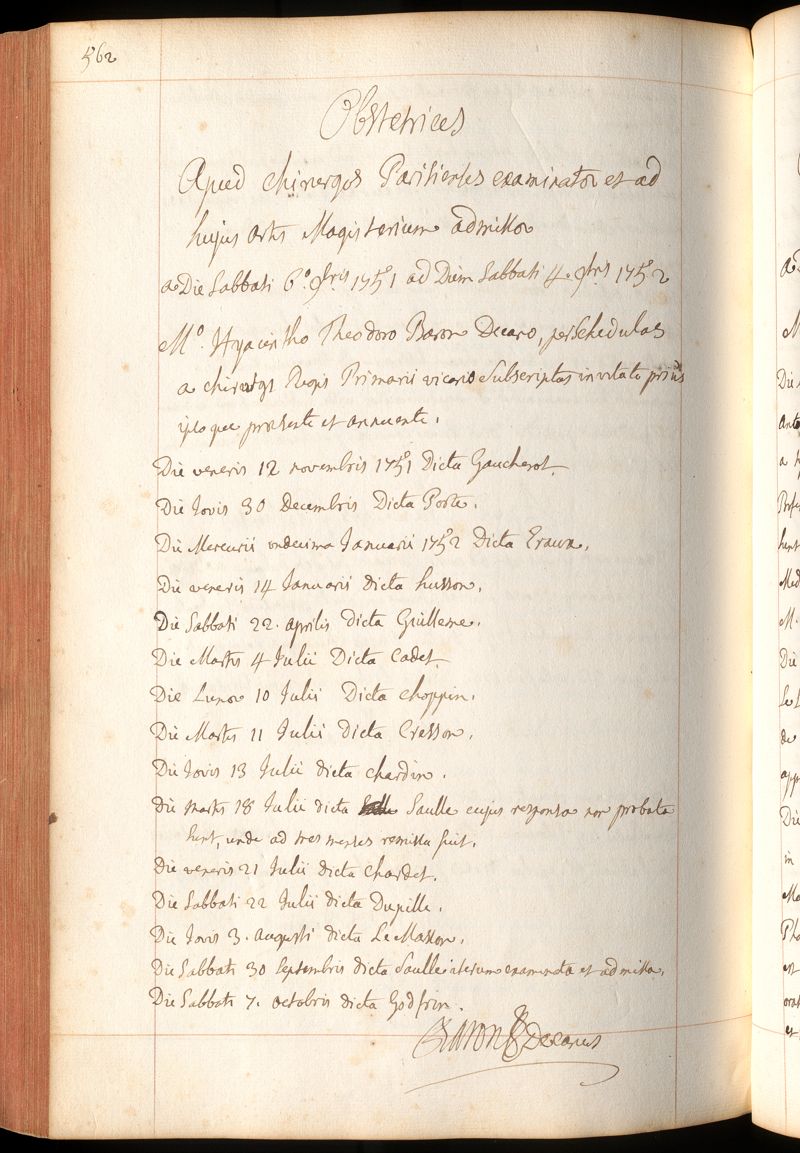 562
Obstetrices
Apud chirurgos Parisienses examinatae et ad
hujus artis Magisterium admissae
a Die Sabbati 6°. 9bris 1751 ad Diem Sabbati 4. 9bris 1752
M°. Hyacintho Theodoro Baron Decano, per Schedulas
a chirurgi Regis Primarii vicario Subscriptas invitato prius
ipso que praesente et annuente.
Die veneris 12 novembris 1751 Dicta Gaucherot.
Die Jovis 30 Decembris Dicta Porte.
Die Mercurii undecima Januarii 1752 Dicta
Die veneris 14 Januarii dicta husson.
Die Sabbati 22. aprilis dicta Guilleme.
Die Martis 4 Julii Dicta Cadet.
Die Lunae 10 Julii Dicta Choppin.
Die Martis 11 Julii dicta Cresson.
Die Jovis 13 Julii dicta chardin.
Die martis 18 Julii dicta Saulle cujus responsa non probata
sunt, unde ad tres menses remissa fuit.
Die veneris 21 Julii dicta Chardet.
Die Sabbati 22 Julii dicta Dupille.
Die Jovis 3. Augusti dicta Le Masson.
Die Sabbati 30 Septembris dicta Saulle iterum examinata et admissa.
Die Sabbati 7. octobris dicta Godfrin.
Baron Decanus